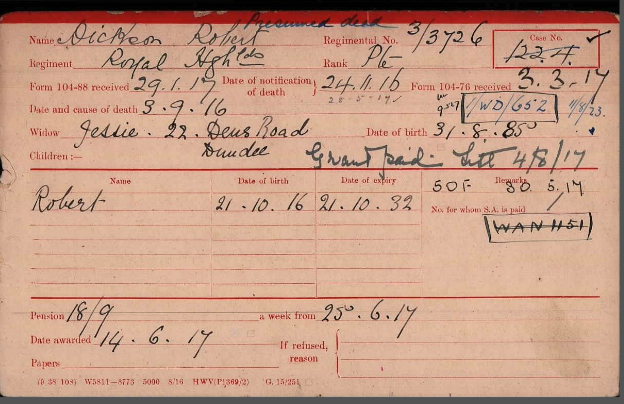 Presumed dead
Name Dickson Robert Regimental No. 3/3726 Case No.
Regiment Royal Hghlds Rank Pte 1224
Form 104-88 received 29.1.17 Date of notification of death 24.11.16 Form 104-76 received 3.3.17
Date and cause of death 3.9.16 1/WD/652
Widow Jessie. 22. Dens Road Date of birth 31.8.85
Dundee
Children :— Grant paid List 4/8/17
Name Date of birth Date of expiry Remarks
Robert 21.10.16 21.10.32 50F 30.5.17
No. for whom S.A. is paid
WAN 1151
Pension 18/9 a week from 25.6.17
Date awarded 14.6.17 If refused, reason
Papers
(9 38 108) W5811—8773 5000 8/16 HWV(P1369/2) G. 15/251